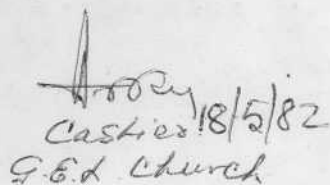 Cashier 18/5/82
G.E.L. Church